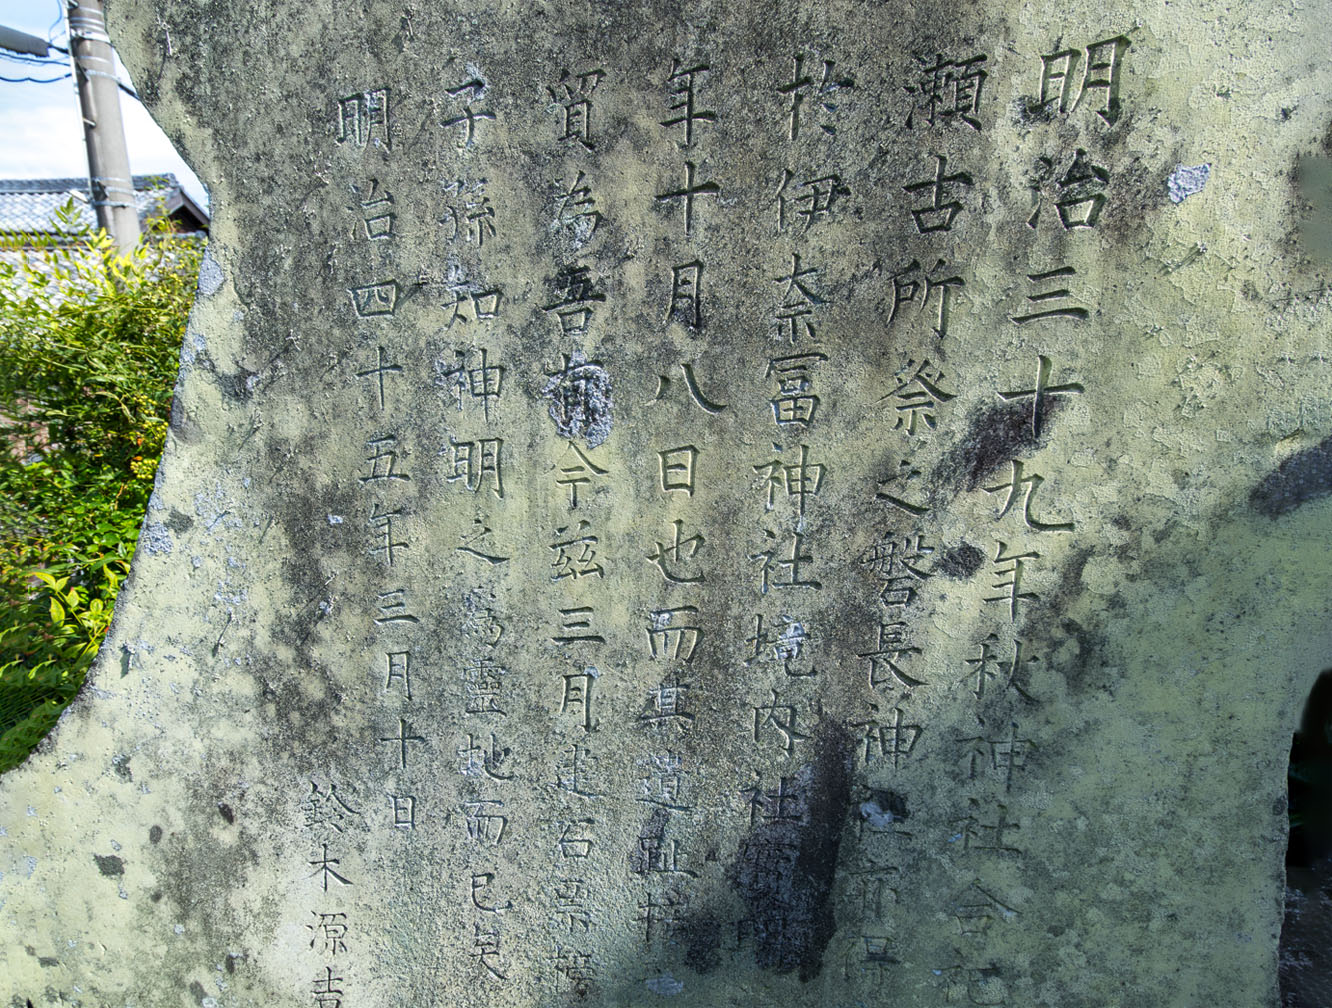 明治三十九年秋神社合祀
瀬古所祭之磐長神社亦得
於伊奈冨神社境内社
年十月八日也而其遺趾
貿為吾有今茲三月建石
子孫知神明之為靈地而已矣
明治四十五年三月十日
鈴木源吉